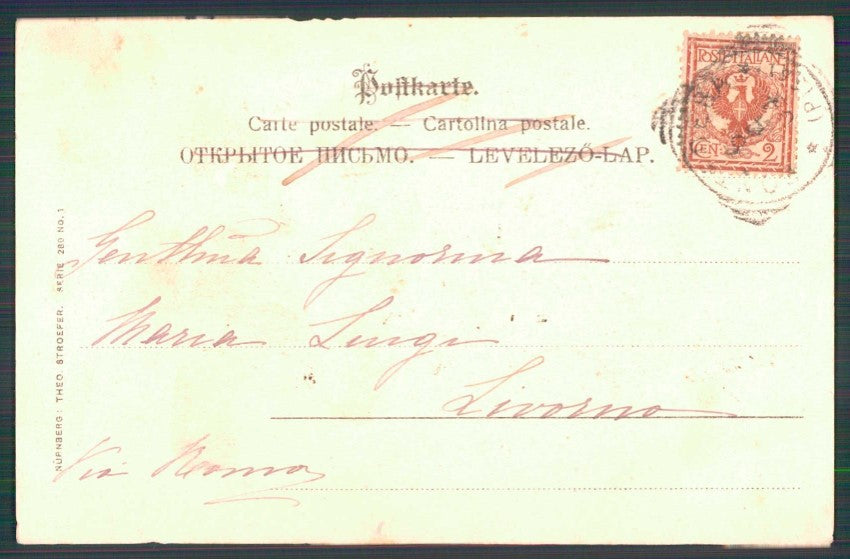 Postkarte.
Carte postale. — Cartolina postale.
ОТКРЫТОЕ ПИСЬМО. — LEVELEZŐ-LAP.
POSTE ITALIANE
CEN. 2
(PISA)
Signorina
Maria
Livorno
Via Roma
NÜRNBERG: THEO STROEFER. SERIE 280 NO. 1